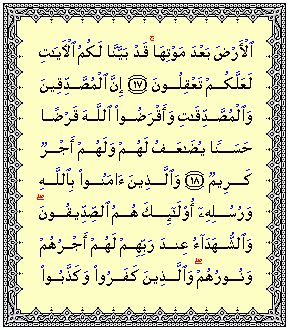 ٱلْأَرْضَ بَعْدَ مَوْتِهَا ۚ قَدْ بَيَّنَّا لَكُمُ ٱلْـَٔايَـٰتِ
لَعَلَّكُمْ تَعْقِلُونَ ﴿١٧﴾ إِنَّ ٱلْمُصَّدِّقِينَ
وَٱلْمُصَّدِّقَـٰتِ وَأَقْرَضُوا۟ ٱللَّهَ قَرْضًا
حَسَنًا يُضَـٰعَفُ لَهُمْ وَلَهُمْ أَجْرٌ
كَرِيمٌ ﴿١٨﴾ وَٱلَّذِينَ ءَامَنُوا۟ بِٱللَّهِ
وَرُسُلِهِۦٓ أُو۟لَـٰٓئِكَ هُمُ ٱلصِّدِّيقُونَ ۖ
وَٱلشُّهَدَآءُ عِندَ رَبِّهِمْ لَهُمْ أَجْرُهُمْ
وَنُورُهُمْ ۖ وَٱلَّذِينَ كَفَرُوا۟ وَكَذَّبُوا۟